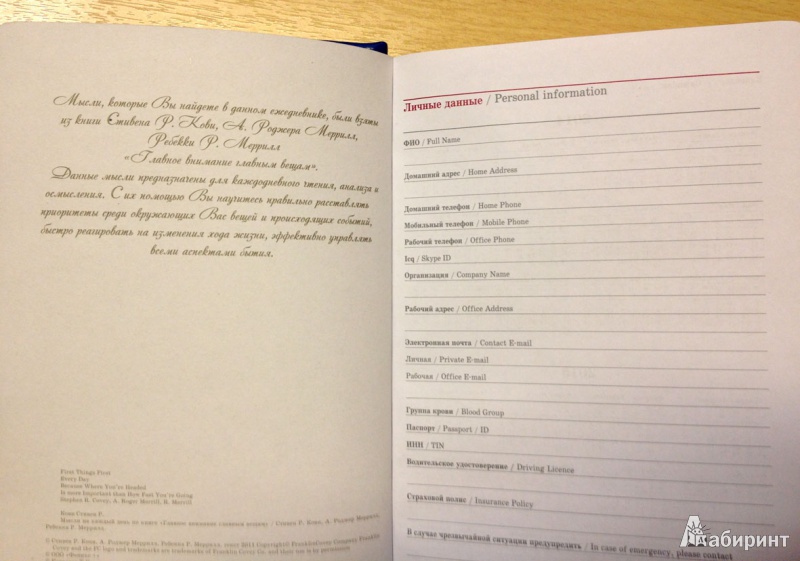 Мысли, которые Вы найдете в данном ежедневнике, были взяты
из книги Стивена Р. Кови, А. Роджера Меррилл,
Ребекки Р. Меррилл
«Главное внимание главным вещам».
Данные мысли предназначены для каждодневного чтения, анализа и
осмысления. С их помощью Вы научитесь правильно расставлять
приоритеты среди окружающих Вас вещей и происходящих событий,
быстро реагировать на изменения хода жизни, эффективно управлять
всеми аспектами бытия.
First Things First
Every Day
Because Where You're Headed
Is more Important than How Fast You're Going
Stephen R. Covey, A. Roger Merrill, R. Merrill
Кови Стивен Р.
Мысли на каждый день по книге «Главное внимание главным вещам» / Стивен Р. Кови, А. Роджер Меррилл,
Ребекка Р. Меррилл.
© Стивен Р. Кови, А. Роджер Меррилл, Ребекка Р. Меррилл, 2011 Copyright© FranklinCovey Company Franklin
Covey and the FC logo and trademarks are trademarks of Franklin Covey Co. and their use is by permission
Личные данные / Personal information
ФИО / Full Name
Домашний адрес / Home Address
Домашний телефон / Home Phone
Мобильный телефон / Mobile Phone
Рабочий телефон / Office Phone
Icq / Skype ID
Организация / Company Name
Рабочий адрес / Office Address
Электронная почта / Contact E-mail
Личная / Private E-mail
Рабочая / Office E-mail
Группа крови / Blood Group
Паспорт / Passport / ID
ИНН / TIN
Водительское удостоверение / Driving Licence
Страховой полис / Insurance Policy
В случае чрезвычайной ситуации предупредить / In case of emergency, please contact
Лабиринт